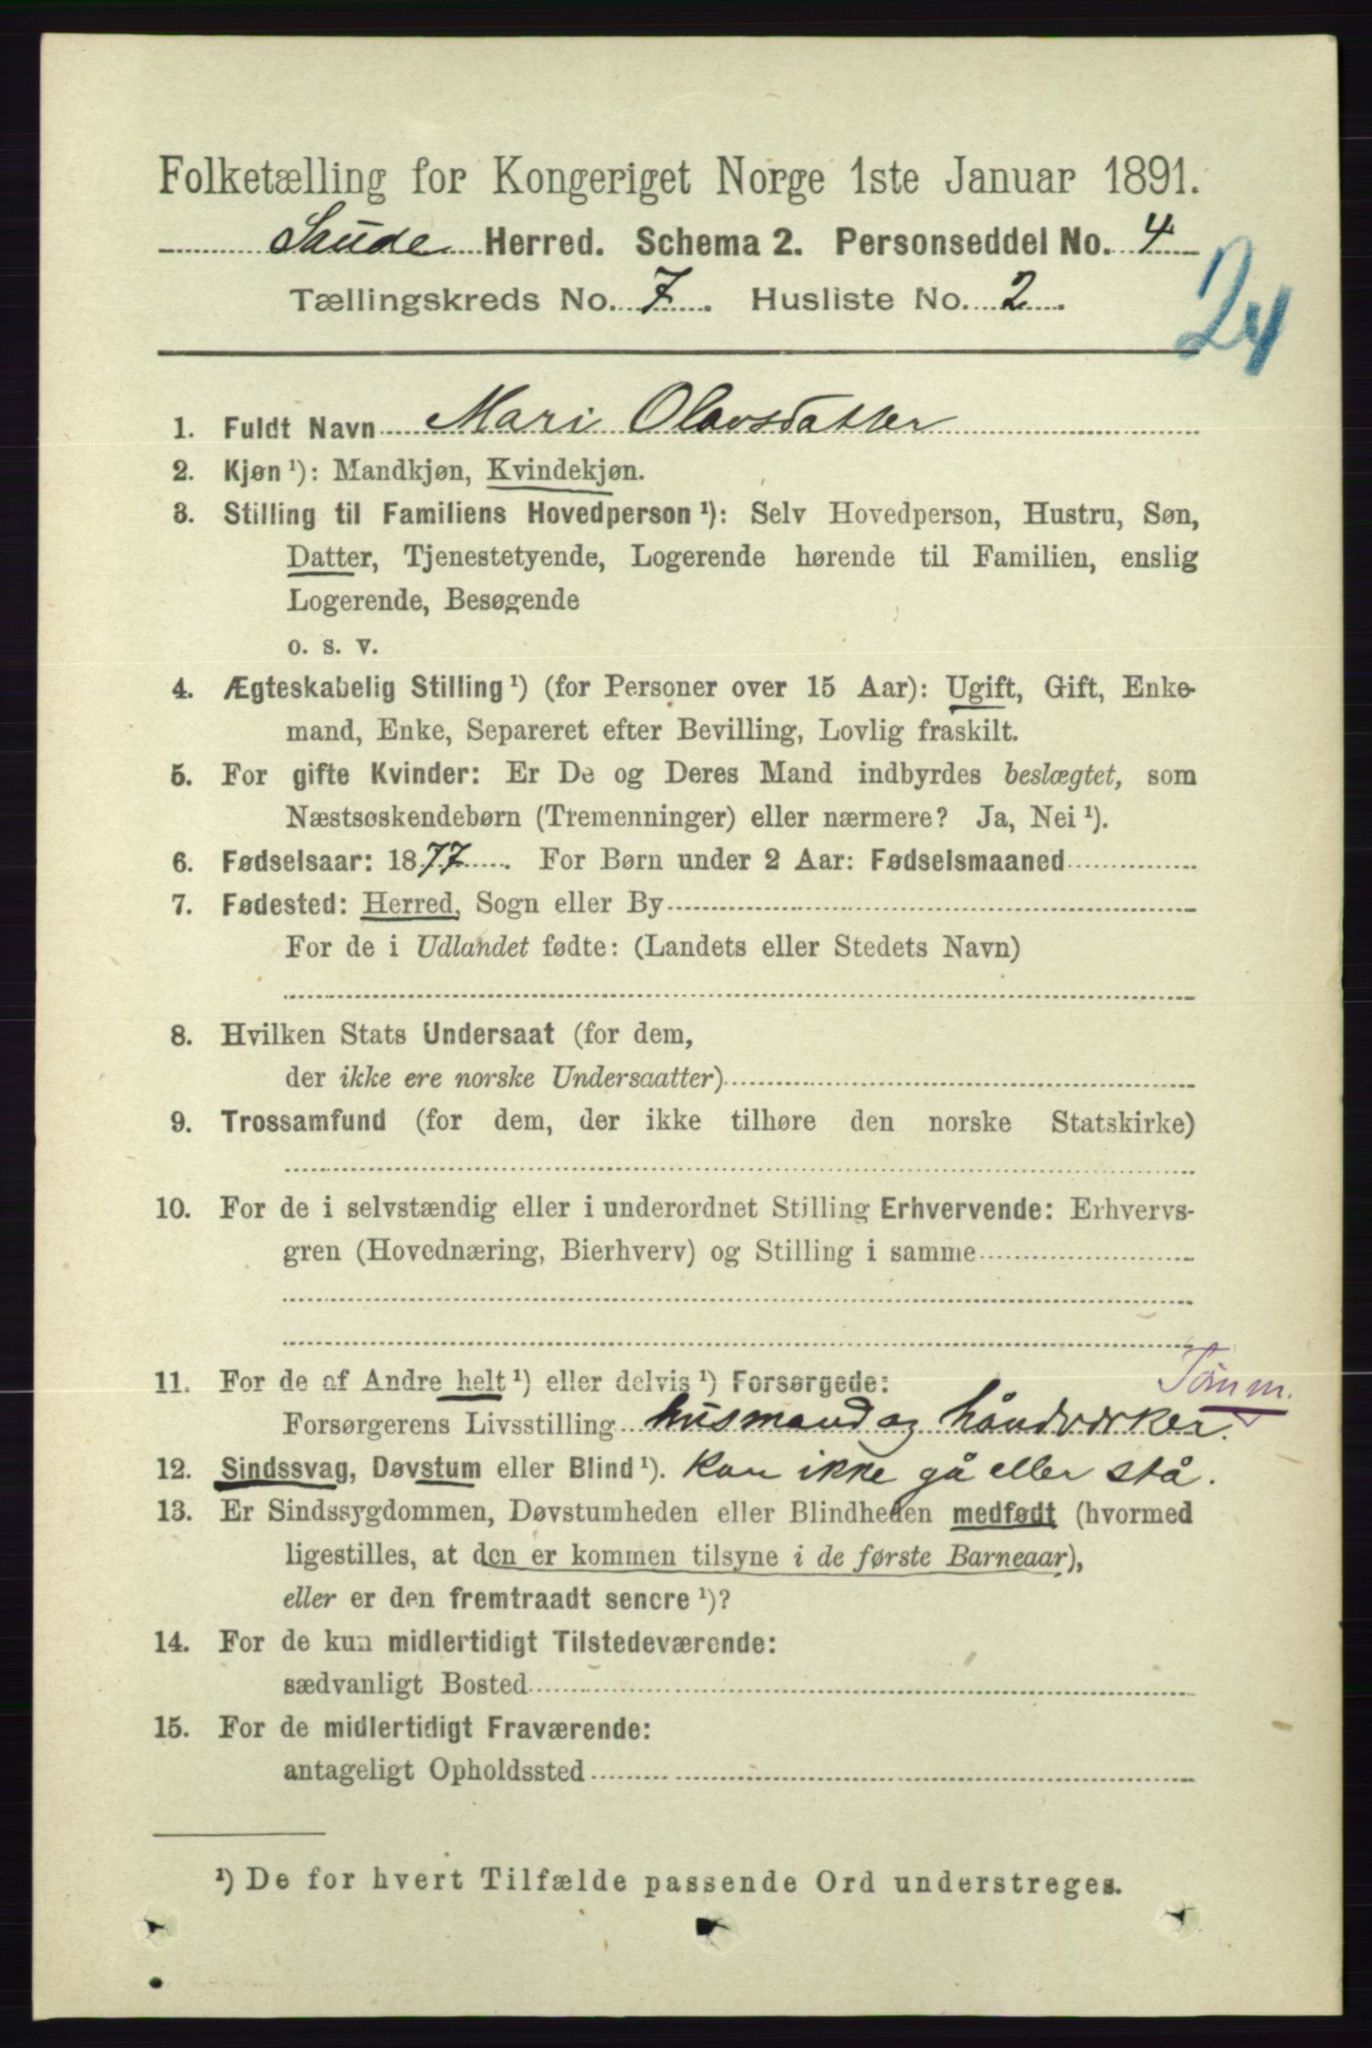 Folketælling for Kongeriget Norge 1ste Januar 1891.
Saude Herred. Schema 2. Personseddel No. 4
Tællingskreds No. 7. Husliste No. 2.
24
1. Fuldt Navn Mari Olavsdatter
2. Kjøn ¹): Mandkjøn, Kvindekjøn.
3. Stilling til Familiens Hovedperson ¹): Selv Hovedperson, Hustru, Søn,
Datter, Tjenestetyende, Logerende hørende til Familien, enslig
Logerende, Besøgende
o. s. v.
4. Ægteskabelig Stilling ¹) (for Personer over 15 Aar): Ugift, Gift, Enke-
mand, Enke, Separeret efter Bevilling, Lovlig fraskilt.
5. For gifte Kvinder: Er De og Deres Mand indbyrdes beslægtet, som
Næstsøskendebørn (Tremenninger) eller nærmere? Ja, Nei ¹).
6. Fødselsaar: 1877. For Børn under 2 Aar: Fødselsmaaned
7. Fødested: Herred, Sogn eller By
For de i Udlandet fødte: (Landets eller Stedets Navn)
8. Hvilken Stats Undersaat (for dem,
der ikke ere norske Undersaatter)
9. Trossamfund (for dem, der ikke tilhøre den norske Statskirke)
10. For de i selvstændig eller i underordnet Stilling Erhvervende: Erhvervs-
gren (Hovednæring, Bierhverv) og Stilling i samme
11. For de af Andre helt ¹) eller delvis ¹) Forsørgede:
Tømm.
Forsørgerens Livsstilling husmand og håndværker.
12. Sindssvag, Døvstum eller Blind ¹). Kan ikke gå eller stå.
13. Er Sindssygdommen, Døvstumheden eller Blindheden medfødt (hvormed
ligestilles, at den er kommen tilsyne i de første Barneaar),
eller er den fremtraadt senere ¹)?
14. For de kun midlertidigt Tilstedeværende:
sædvanligt Bosted
15. For de midlertidigt Fraværende:
antageligt Opholdssted
¹) De for hvert Tilfælde passende Ord understreges.